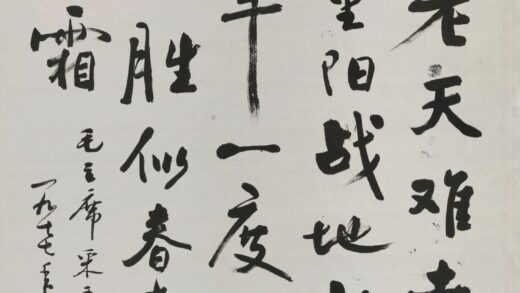 老天难
重阳战地
年一度
胜似春
霜
毛主席采
一九七七